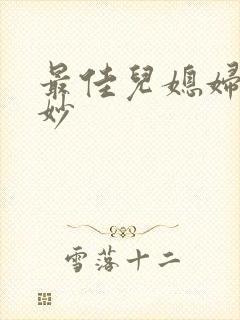 最佳兒媳婦
妙
雪落十二